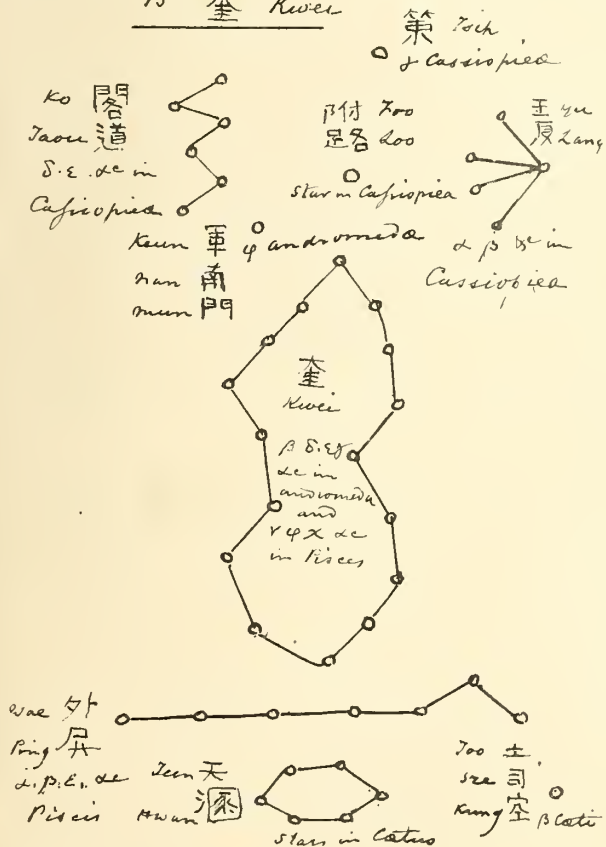 15 奎 Kwei
策 Tsih
γ Cassiopiea
Ko 閣
Taou 道
δ. ε. &c in
Cassiopiea
附 Foo
路 Loo
Star in Cassiopiea
王 Yu
Lang
α β &c in
Cassiopiea
Keun 軍 φ andromeda
nan 南
mun 門
奎
Kwei
β δ. ε
&c in
andromeda
and
ν φ χ &c
in Pisces
Wae 外
Ping 屏
α. β. ε. &c
Piscis
Teen 天
Hwan 溷
Stars in Cætus
Too 土
sze 司
Kung 空 β Cæti